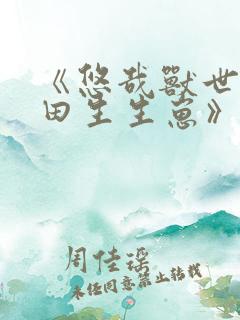 《悠哉獸世
田生生崽》
周佳瑶
未经同意禁止转载